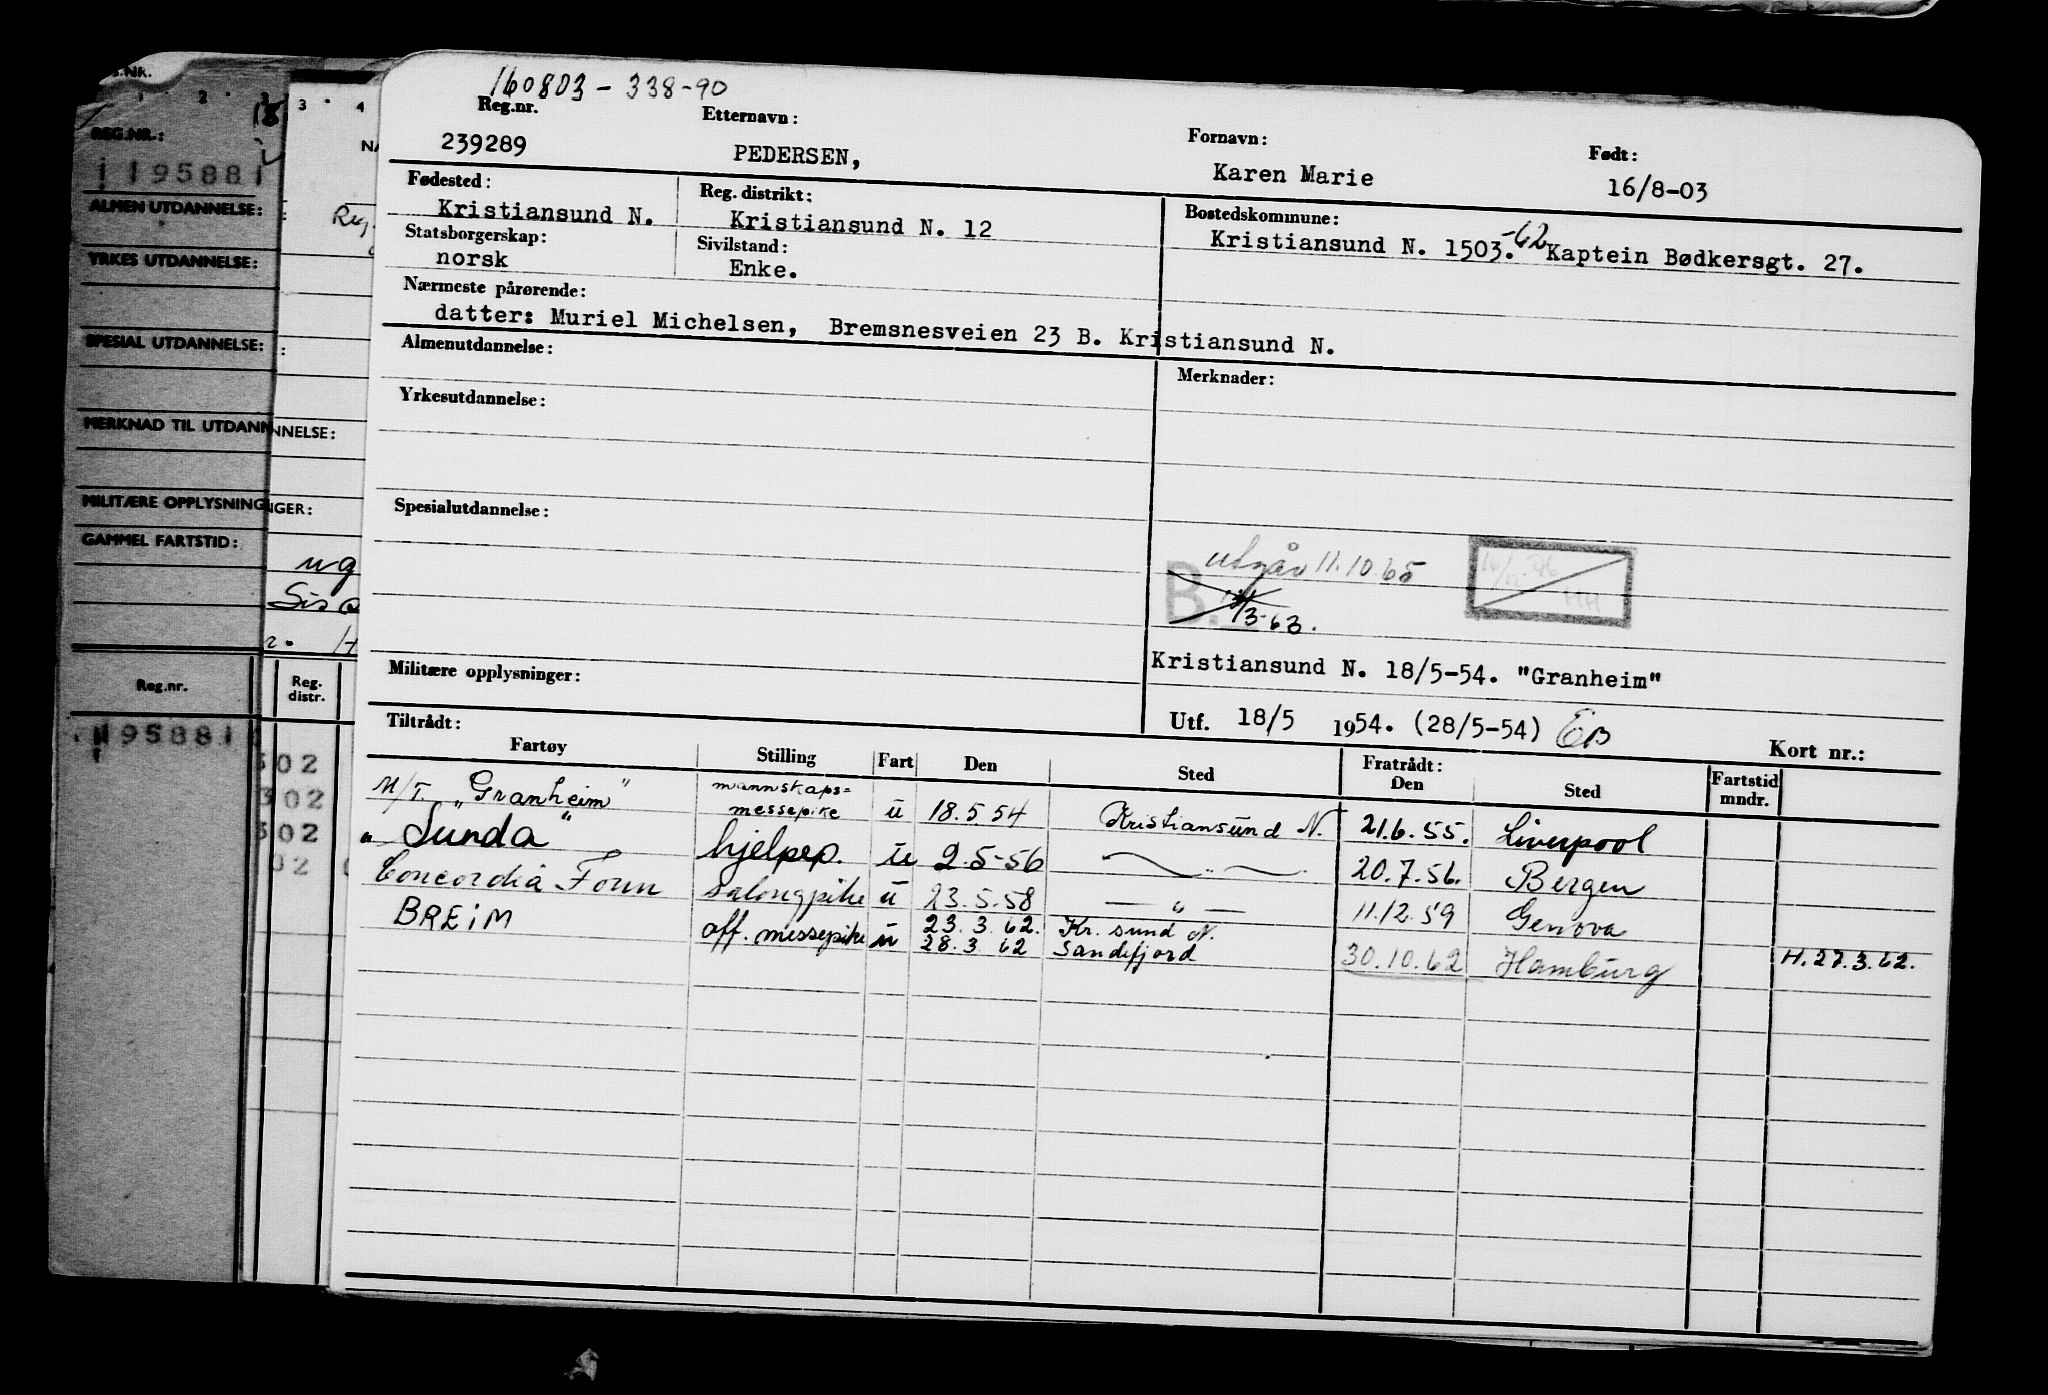 160803 - 338-90
Reg.nr. Etternavn: Fornavn: Født:
239289 PEDERSEN, Karen Marie 16/8-03
Fødested: Reg. distrikt: Bostedskommune:
Kristiansund N. Kristiansund N. 12 Kristiansund N. 1503.-62 Kaptein Bødkersgt. 27.
Statsborgerskap: Sivilstand:
norsk Enke.
Nærmeste pårørende:
datter: Muriel Michelsen, Bremsnesveien 23 B. Kristiansund N.
Almenutdannelse: Merknader:
Yrkesutdannelse:
Spesialutdannelse:
utgår 11.10.65
B.
/3-63.
Militære opplysninger: Kristiansund N. 18/5-54. "Granheim"
Utf. 18/5 1954. (28/5-54) EB Kort nr.:
Tiltrådt: Fratrådt:
Fartøy Stilling Fart Den Sted Den Sted Fartstid mndr.
M/T. „Granheim" mannskaps= messepike u 18.5.54 Kristiansund N. 21.6.55. Liverpool
„ Sunda " hjelpep. u 2.5-56 — „ — 20.7.56. Bergen
Concordia Fonn salongpike u 23.5.58 — „ — 11.12.59 Genova
BREIM off. messepike u 23.3.62. Kr.sund N.
28.3.62 Sandefjord 30.10.62 Hamburg H.27.3.62.
S.NR.
1 2 3
3 4
REG.NR.:
195881
ALMEN UTDANNELSE:
YRKES UTDANNELSE:
SPESIAL UTDANNELSE:
MERKNAD TIL UTDANNELSE:
NNELSE:
MILITÆRE OPPLYSNINGER:
GER:
GAMMEL FARTSTID:
Reg.nr. Reg. distr.
195881
302
302
302
02